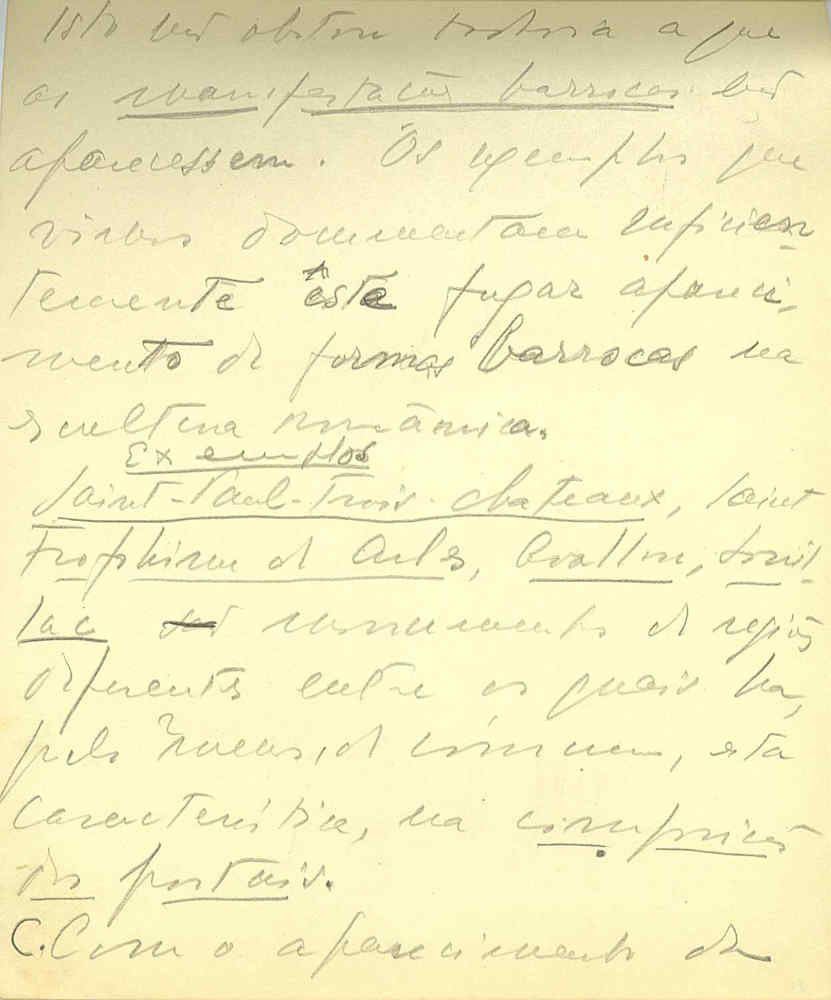 Isto não obstou todavia a que
as manifestações barrocas não
aparecessem. Os exemplos que
vimos documentam suficien-
temente êste fugaz apareci-
mento de formas barrocas na
escultura românica.
Exemplos
Saint-Paul-Trois-chateaux, Saint
Trophime de Arles, Avallon, Souil-
lac são monumentos de regiões
diferentes entre os quais ha,
pelo menos, de comum, esta
característica, na composição
dos portais.
C. Com o aparecimento da